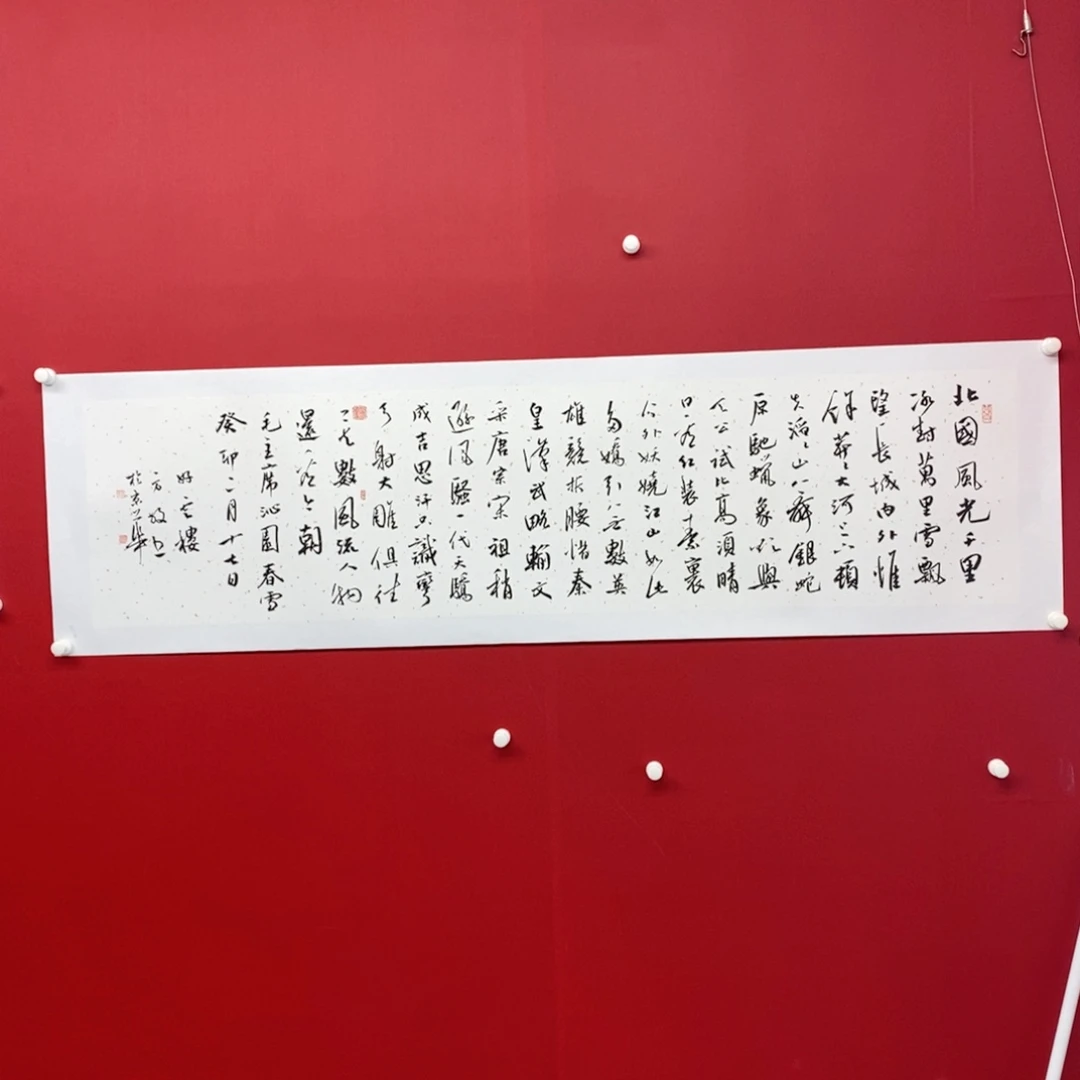 北國風光千里
冰封萬里雪飄
望長城内外惟
餘莽〻大河上下頓
失滔〻山舞銀蛇
原馳蠟象欲與
天公試比高須晴
日看红装素裹
分外妖嬈江山如此
多嬌引無數英
雄競折腰惜秦
皇漢武略輸文
采唐宗宋祖稍
遜風騷一代天驕
成吉思汗只識彎
弓射大雕俱往
矣數風流人物
還看今朝
毛主席沁園春雪
癸卯二月十七日
樓
於京華